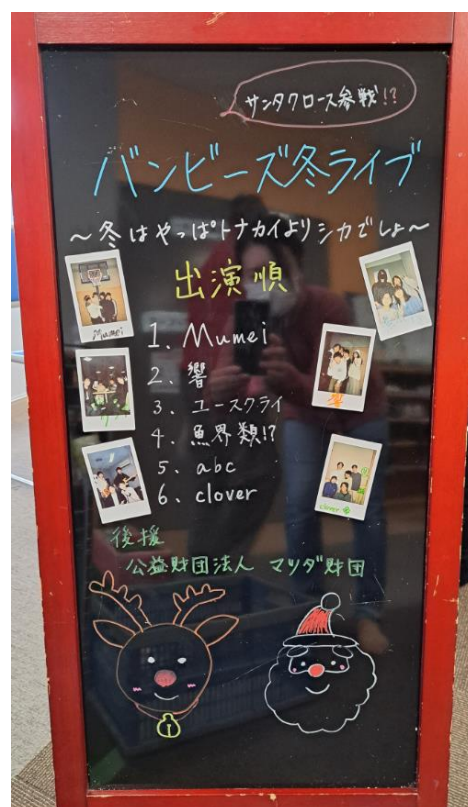 サンタクロース参戦!?
バンビーズ冬ライブ
～冬はやっぱトナカイよりシカでしょ～
出演順
1. Mumei
2. 響
3. ユースクライ
4. 魚界類!?
5. abc
6. clover
後援
公益財団法人 マツダ財団
Mumei
響
clover